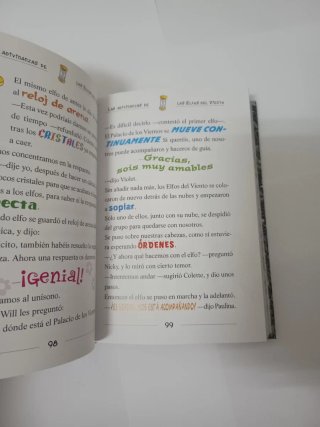 LAS AVENTURAS DE
El mismo elfo de antes le dio
al reloj de arena.
—Esta vez podréis
de tiempo —refunfuñó
tras los CRISTALES
a caer.
nos concentramos en la respuesta
—dije yo, después de
pocos cristales para que
ecta.
do elfo se guardó el reloj de
a, y dijo:
cito, también habéis resuelto la
za. Ahora una respuesta os
¡Genial!
amos al unísono.
Will les preguntó:
dónde está el Palacio de los
98
LAS AVENTURAS DE
LOS ELFOS DEL VIENTO
—Es difícil decirlo —contestó el primer elfo—.
El Palacio de los Vientos SE MUEVE CON-
TINUAMENTE. Si queréis, uno de noso-
tros puede acompañaros y haceros de guía.
—Gracias,
sois muy amables
—dijo Violet.
Sin añadir nada más, los Elfos del Viento se colo-
caron de nuevo detrás de las nubes y empezaron
a soplar.
Sólo uno de ellos, junto con su nube, se despidió
del grupo para quedarse con nosotros.
Se puso sobre nuestras cabezas, como si estuvie-
ra esperando ÓRDENES.
—¿Y ahora qué hacemos con el elfo? —preguntó
Nicky, y lo miró con cierto temor.
—Intentemos andar —sugirió Colette, y dio unos
pasos.
Entonces el elfo se puso en marcha y la adelantó.
NOS ESTÁ ACOMPAÑANDO! —dijo Paulina.
99